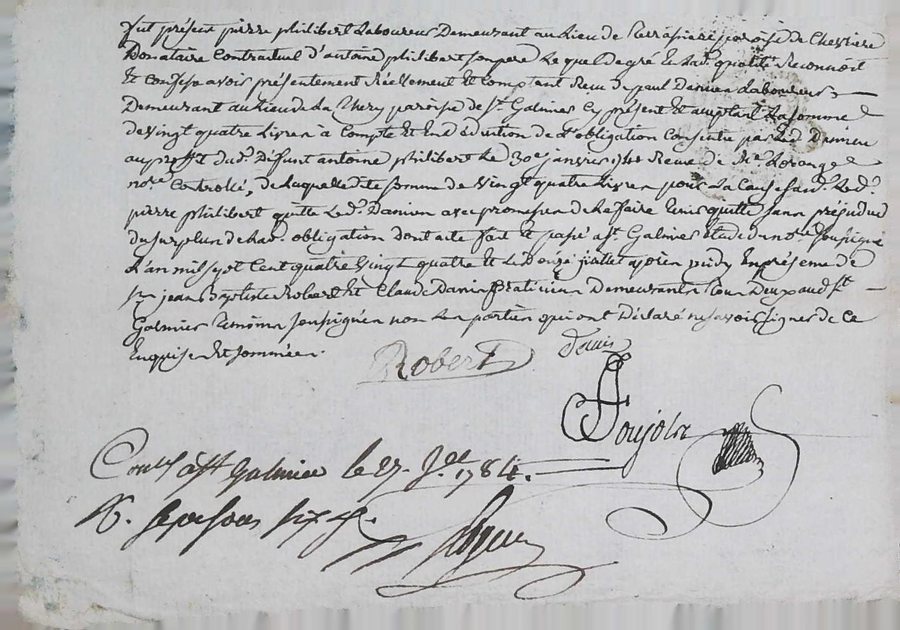 fut présent pierre philibert Laboureur Demeurant au Lieu de paroisse de Chevriere
Donataire Contractuel d'antoine philibert son pere Lequel de gré et quallité Reconnoit
Et Confesse avoir présentement Réellement et Comptant Reçu de paul Damien Laboureur
Demeurant au Lieu de La Thery paroisse de St. Galmier Cy présent Et acceptant La somme
de Vingt quatre Livres à Compte Et En déduction de L'obligation Consentie par Led. Damien
au proffit dud. Deffunt antoine philibert Le 30e janvier Reçue de Me. Lorange
nore. Controllé, de Laquelle dite somme de Vingt quatre Livres pour La Cause Led.
pierre philibert quitte Led. Damien avec promesse de Le faire tenir quitte sans préjudice
du surplus de Lad. obligation dont acte fait et passé a St. Galmier Etude du nore. soussigné
L'an mil sept Cent quatre Vingt quatre Et Le juillet après midy En présence de
Sr. jean Baptiste Robert Et Claude Danis praticien Demeurants tous Deux aud. St.
Galmier temoins soussignés non Les parties qui ont Déclaré ne savoir signer de Ce
Enquises Et sommées.
Robert Danis
Poujola
Conlé à St Galmier le 27 Jet 1784.
R. sept sous six